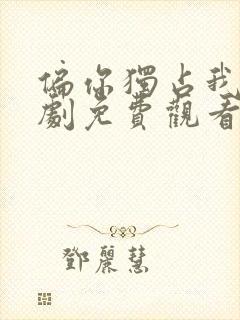 偏你獨占我
劇免費觀看
鄧麗慧